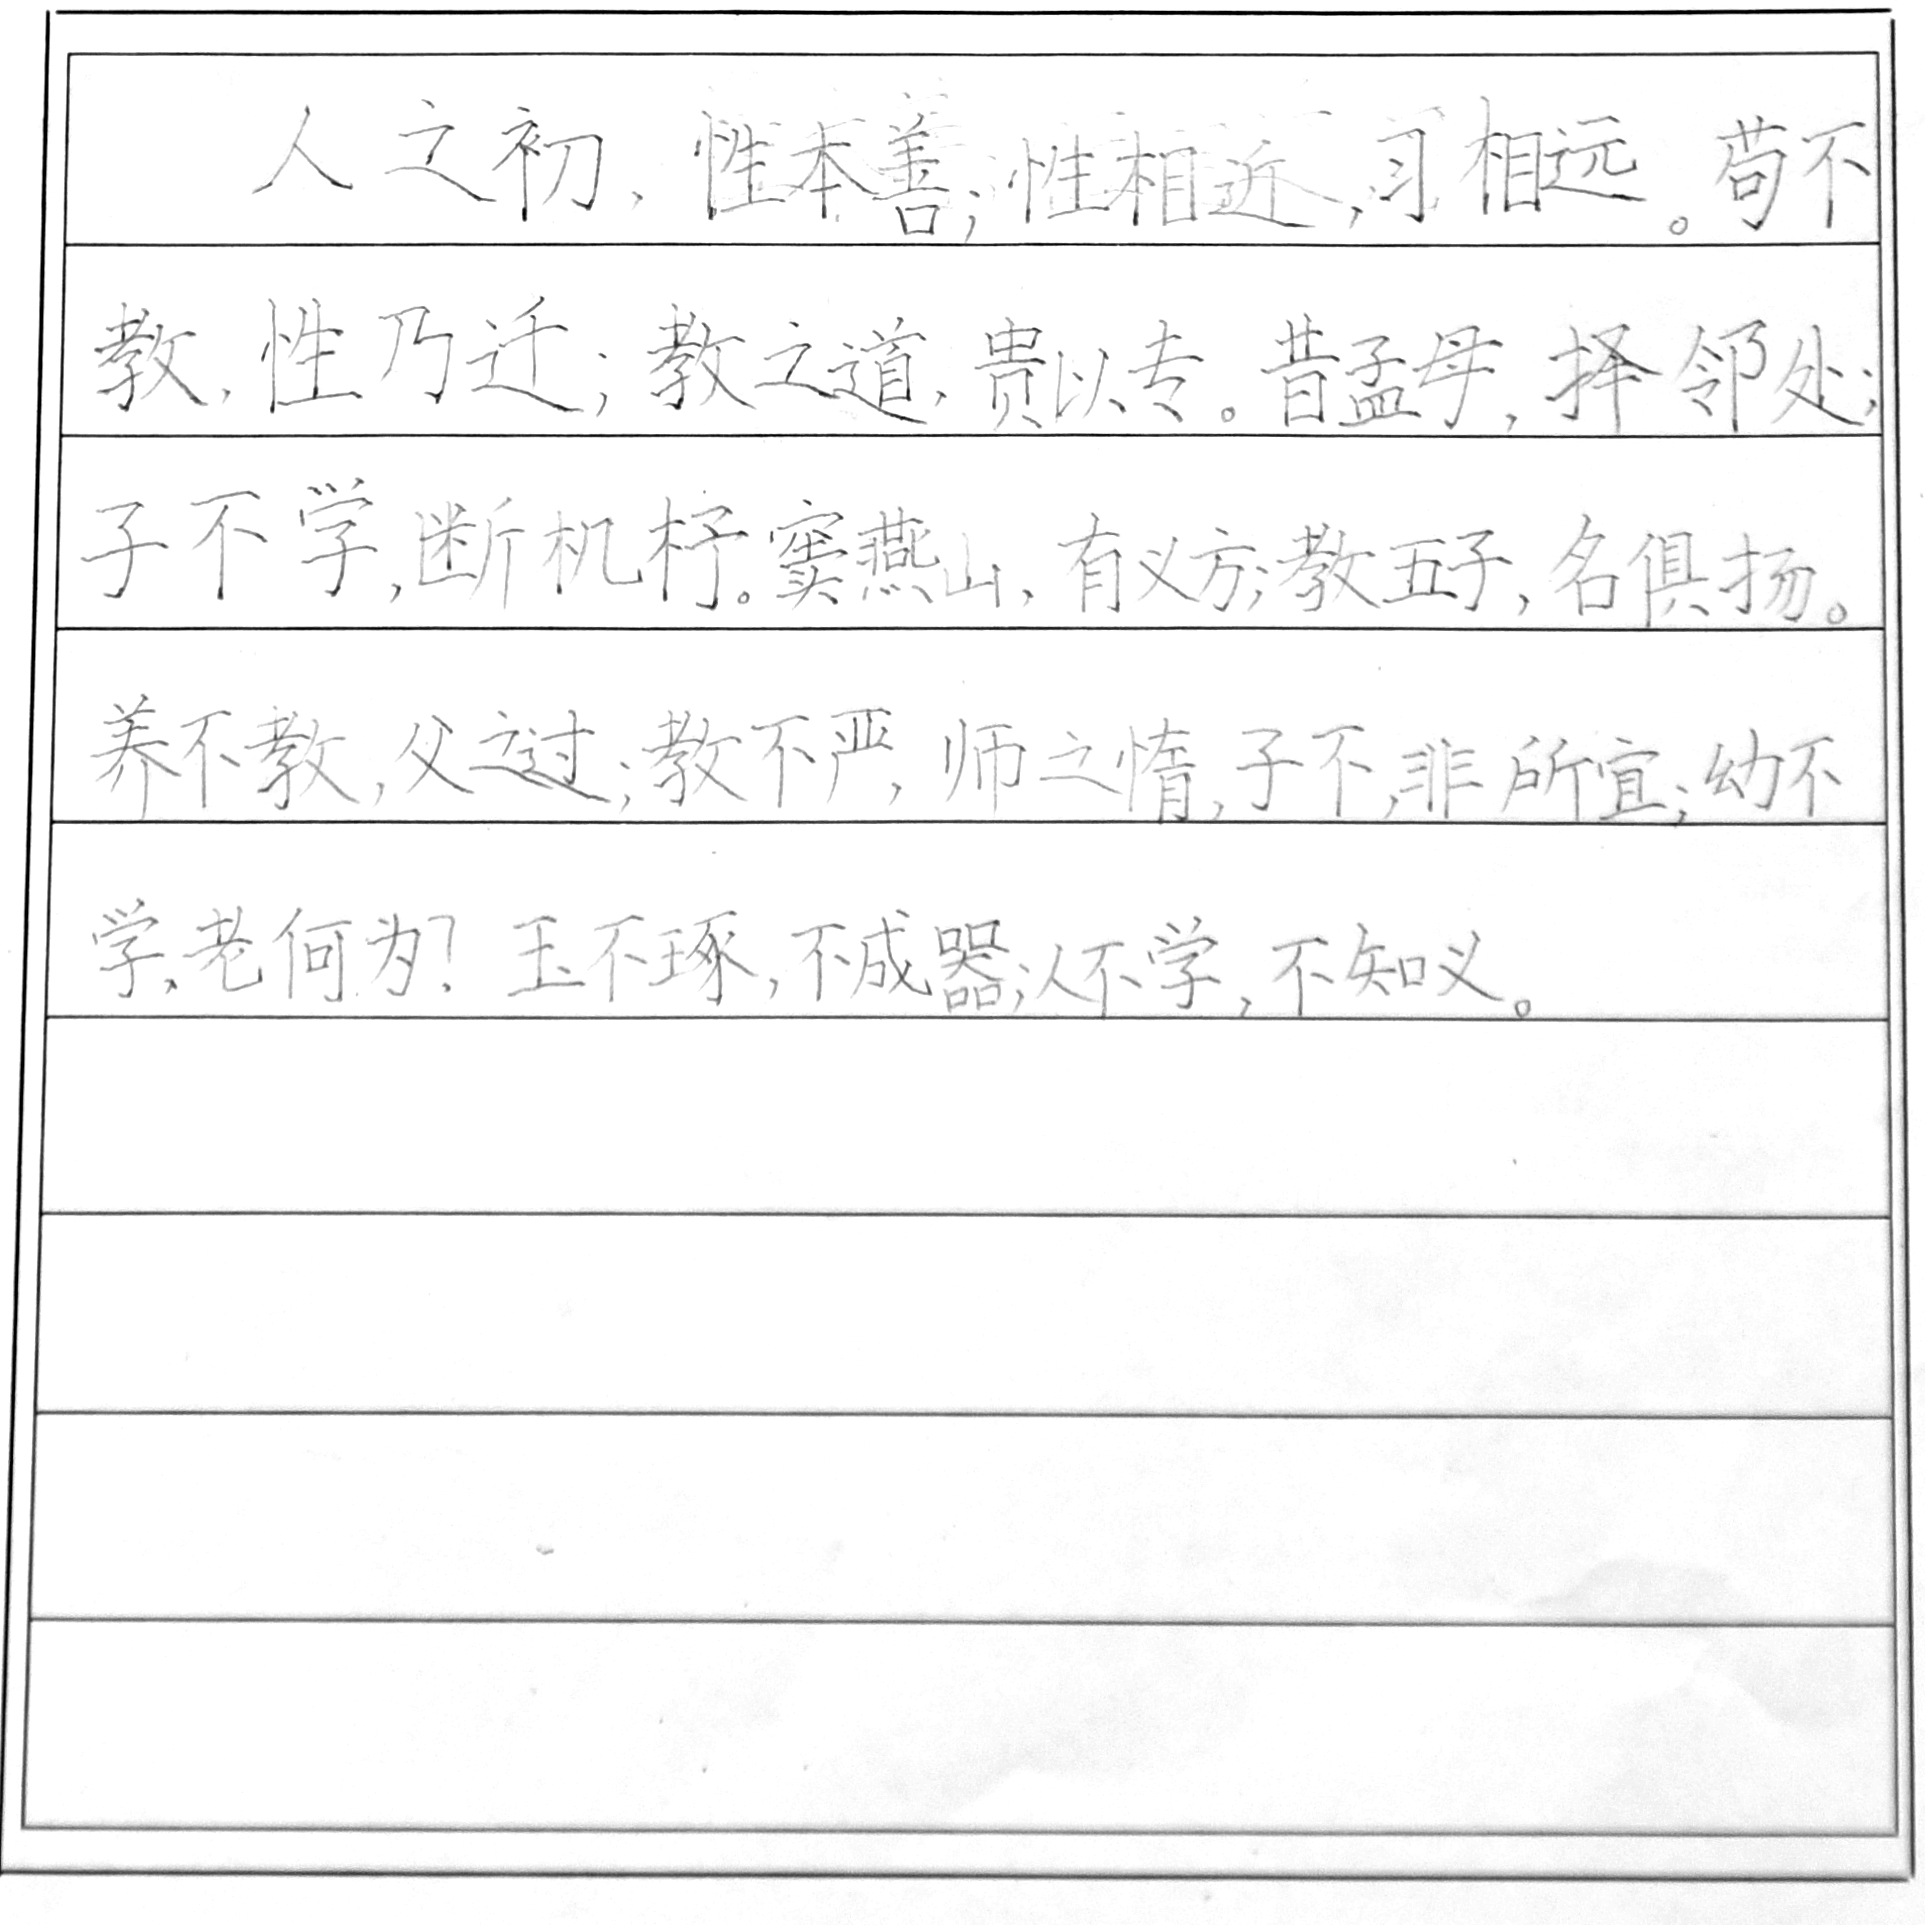 人之初，性本善；性相近，习相远。苟不
教，性乃迁；教之道，贵以专。昔孟母，择邻处；
子不学，断机杼。窦燕山，有义方；教五子，名俱扬。
养不教，父之过；教不严，师之惰，子不，非所宜；幼不
学，老何为？玉不琢，不成器；人不学，不知义。